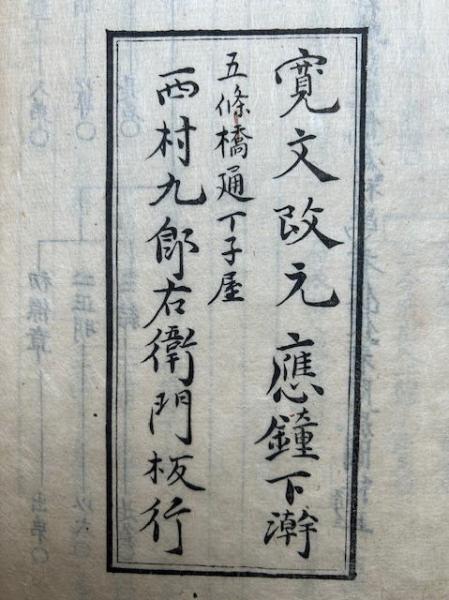 寛文改元應鐘下澣
五條橋通丁子屋
西村九郎右衛門板行